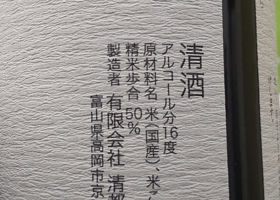 清酒
アルコール分16度
原材料名 米(国産)、米
精米歩合 50%
製造者 有限会社 清都
富山県高岡市京